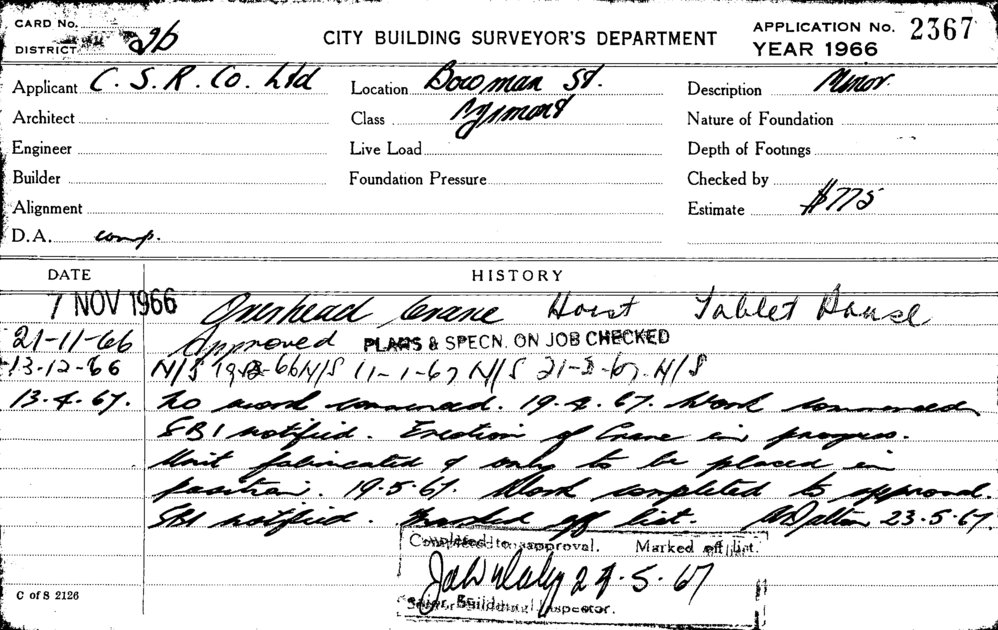 CARD No.
DISTRICT 2b
CITY BUILDING SURVEYOR'S DEPARTMENT
APPLICATION No. 2367
YEAR 1966
Applicant C. S. R. Co. Ltd
Location Bowman St.
Description Minor.
Architect
Class
Nature of Foundation
Engineer
Live Load
Depth of Footings
Builder
Foundation Pressure
Checked by
Alignment
Estimate $775
D.A. comp.
DATE HISTORY
7 NOV 1966 Overhead Crane Hoist Tablet House
21-11-66 Approved PLANS & SPECN. ON JOB CHECKED
13-12-66 N/S 66 N/S 11-1-67 N/S 67. N/S
13.4.67. No work commenced. 19.4.67. Work commenced
SBI notified. Erection of Crane in progress.
Unit fabricated & only to be placed in
position. 19.5.67. Work completed to approval.
SBI notified. Marked off list. W Dalton 23.5.67.
Completed to approval. Marked off list.
5.67
Senior Building Inspector.
C of S 2126